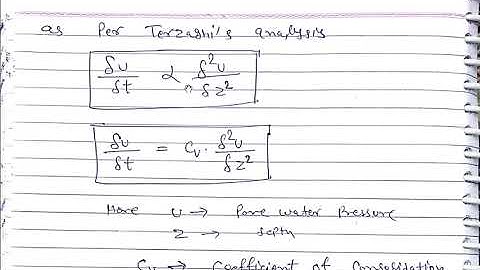 as Per Terzaghi's analysis
δu/δt ∝ δ²u/δz²
δu/δt = Cv · δ²u/δz²
Here u → Pore water Pressure
z → Depth
Cv → Coefficient of Consolidation